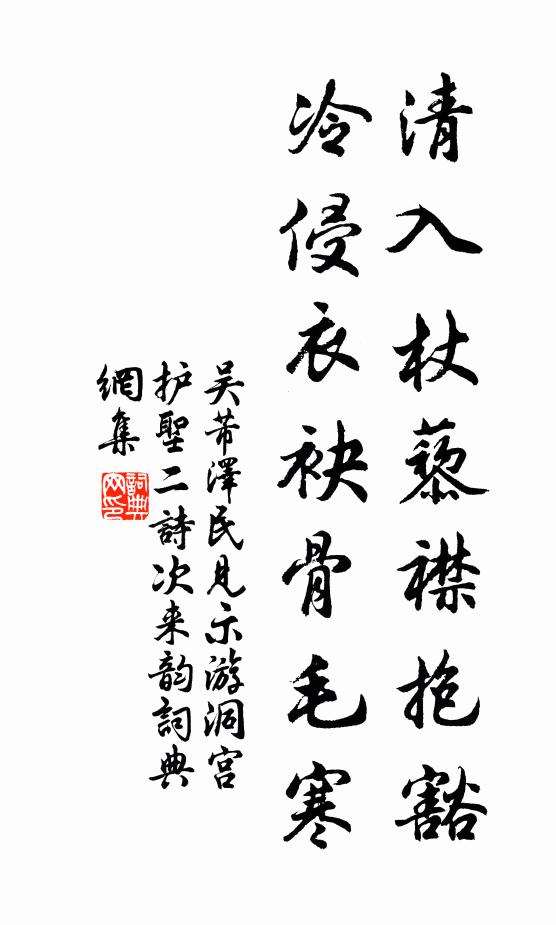 清入杖藜襟抱豁
冷侵衣袂骨毛寒
吴芾澤民見示游洞宫
护聖二詩次来韵詞典
網集
詞典
网印